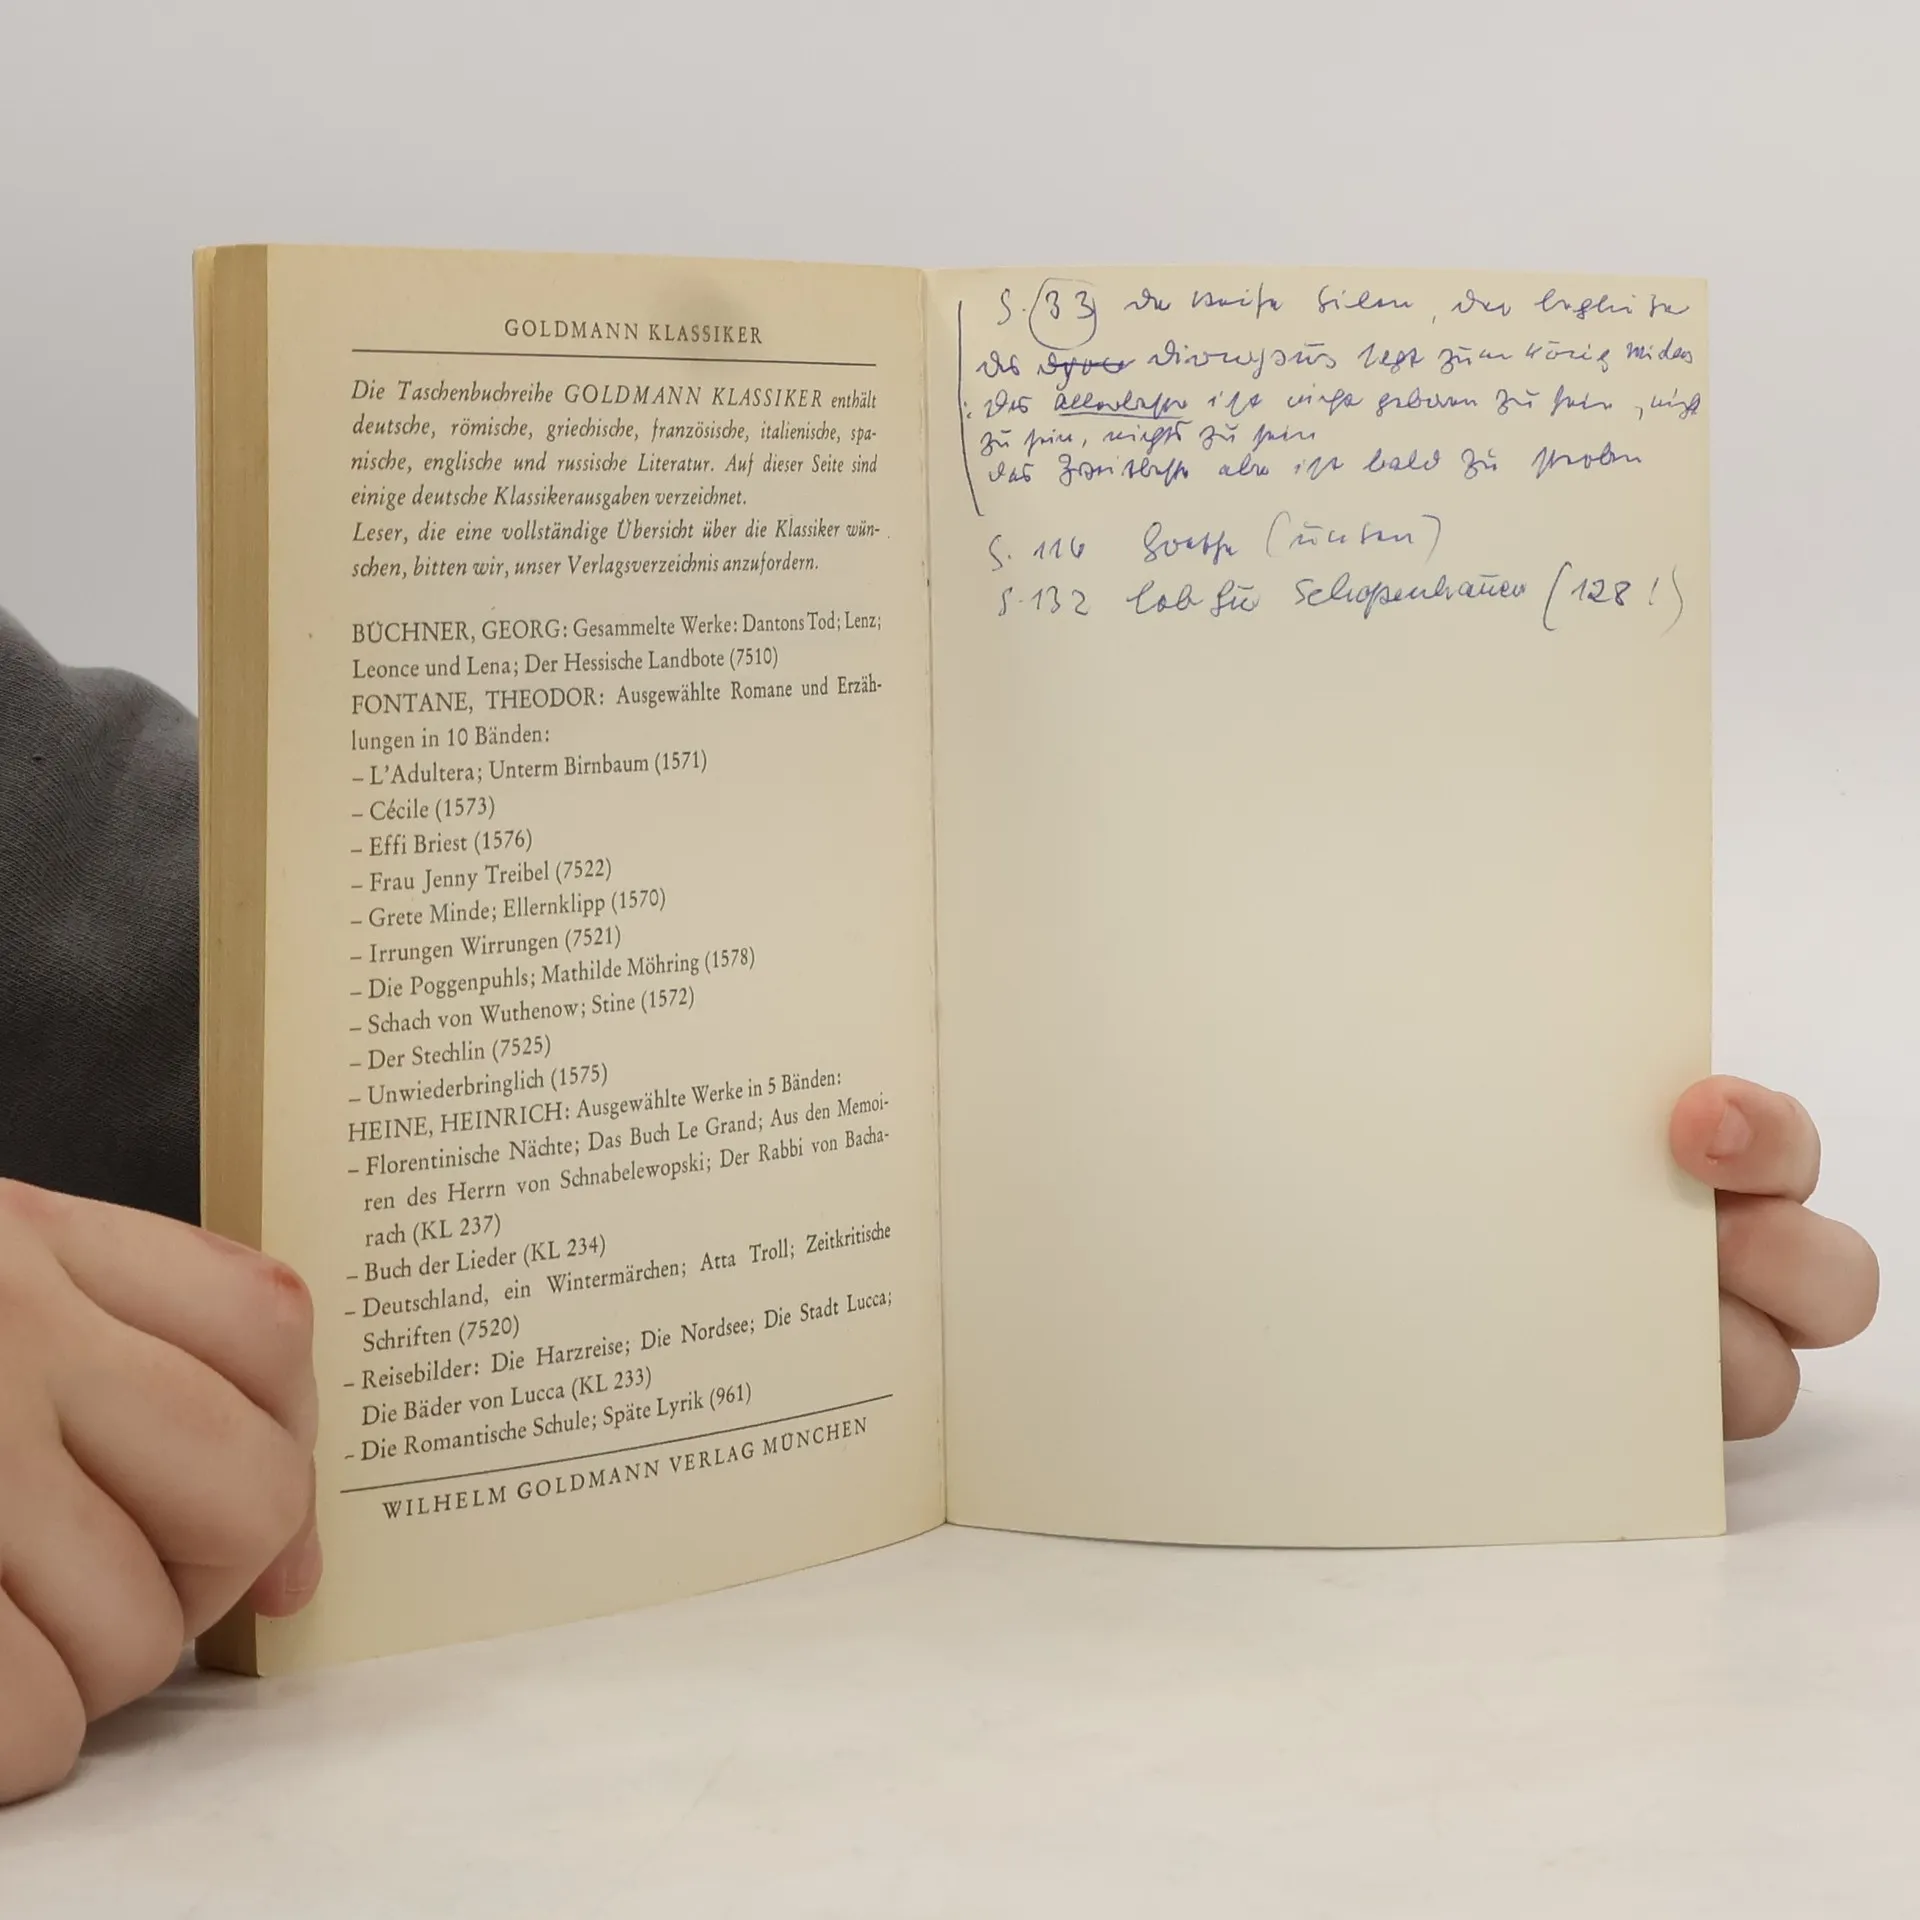 GOLDMANN KLASSIKER
Die Taschenbuchreihe GOLDMANN KLASSIKER enthält
deutsche, römische, griechische, französische, italienische, spa-
nische, englische und russische Literatur. Auf dieser Seite sind
einige deutsche Klassikerausgaben verzeichnet.
Leser, die eine vollständige Übersicht über die Klassiker wün-
schen, bitten wir, unser Verlagsverzeichnis anzufordern.
BÜCHNER, GEORG: Gesammelte Werke: Dantons Tod; Lenz;
Leonce und Lena; Der Hessische Landbote (7510)
FONTANE, THEODOR: Ausgewählte Romane und Erzäh-
lungen in 10 Bänden:
– L'Adultera; Unterm Birnbaum (1571)
– Cécile (1573)
– Effi Briest (1576)
– Frau Jenny Treibel (7522)
– Grete Minde; Ellernklipp (1570)
– Irrungen Wirrungen (7521)
– Die Poggenpuhls; Mathilde Möhring (1578)
– Schach von Wuthenow; Stine (1572)
– Der Stechlin (7525)
– Unwiederbringlich (1575)
HEINE, HEINRICH: Ausgewählte Werke in 5 Bänden:
– Florentinische Nächte; Das Buch Le Grand; Aus den Memoi-
ren des Herrn von Schnabelewopski; Der Rabbi von Bacha-
rach (KL 237)
– Buch der Lieder (KL 234)
– Deutschland, ein Wintermärchen; Atta Troll; Zeitkritische
Schriften (7520)
– Reisebilder: Die Harzreise; Die Nordsee; Die Stadt Lucca;
Die Bäder von Lucca (KL 233)
– Die Romantische Schule; Späte Lyrik (961)
WILHELM GOLDMANN VERLAG MÜNCHEN
S. 33 der weise Silen, der Begleiter
des Dionysus sagt zum König Midas
: Das Allerbeste ist nicht geboren zu sein, nicht
zu sein, nichts zu sein
das Zweitbeste aber ist bald zu sterben
S. 116 Goethe (unten)
S. 132 Lob für Schopenhauer (128!)